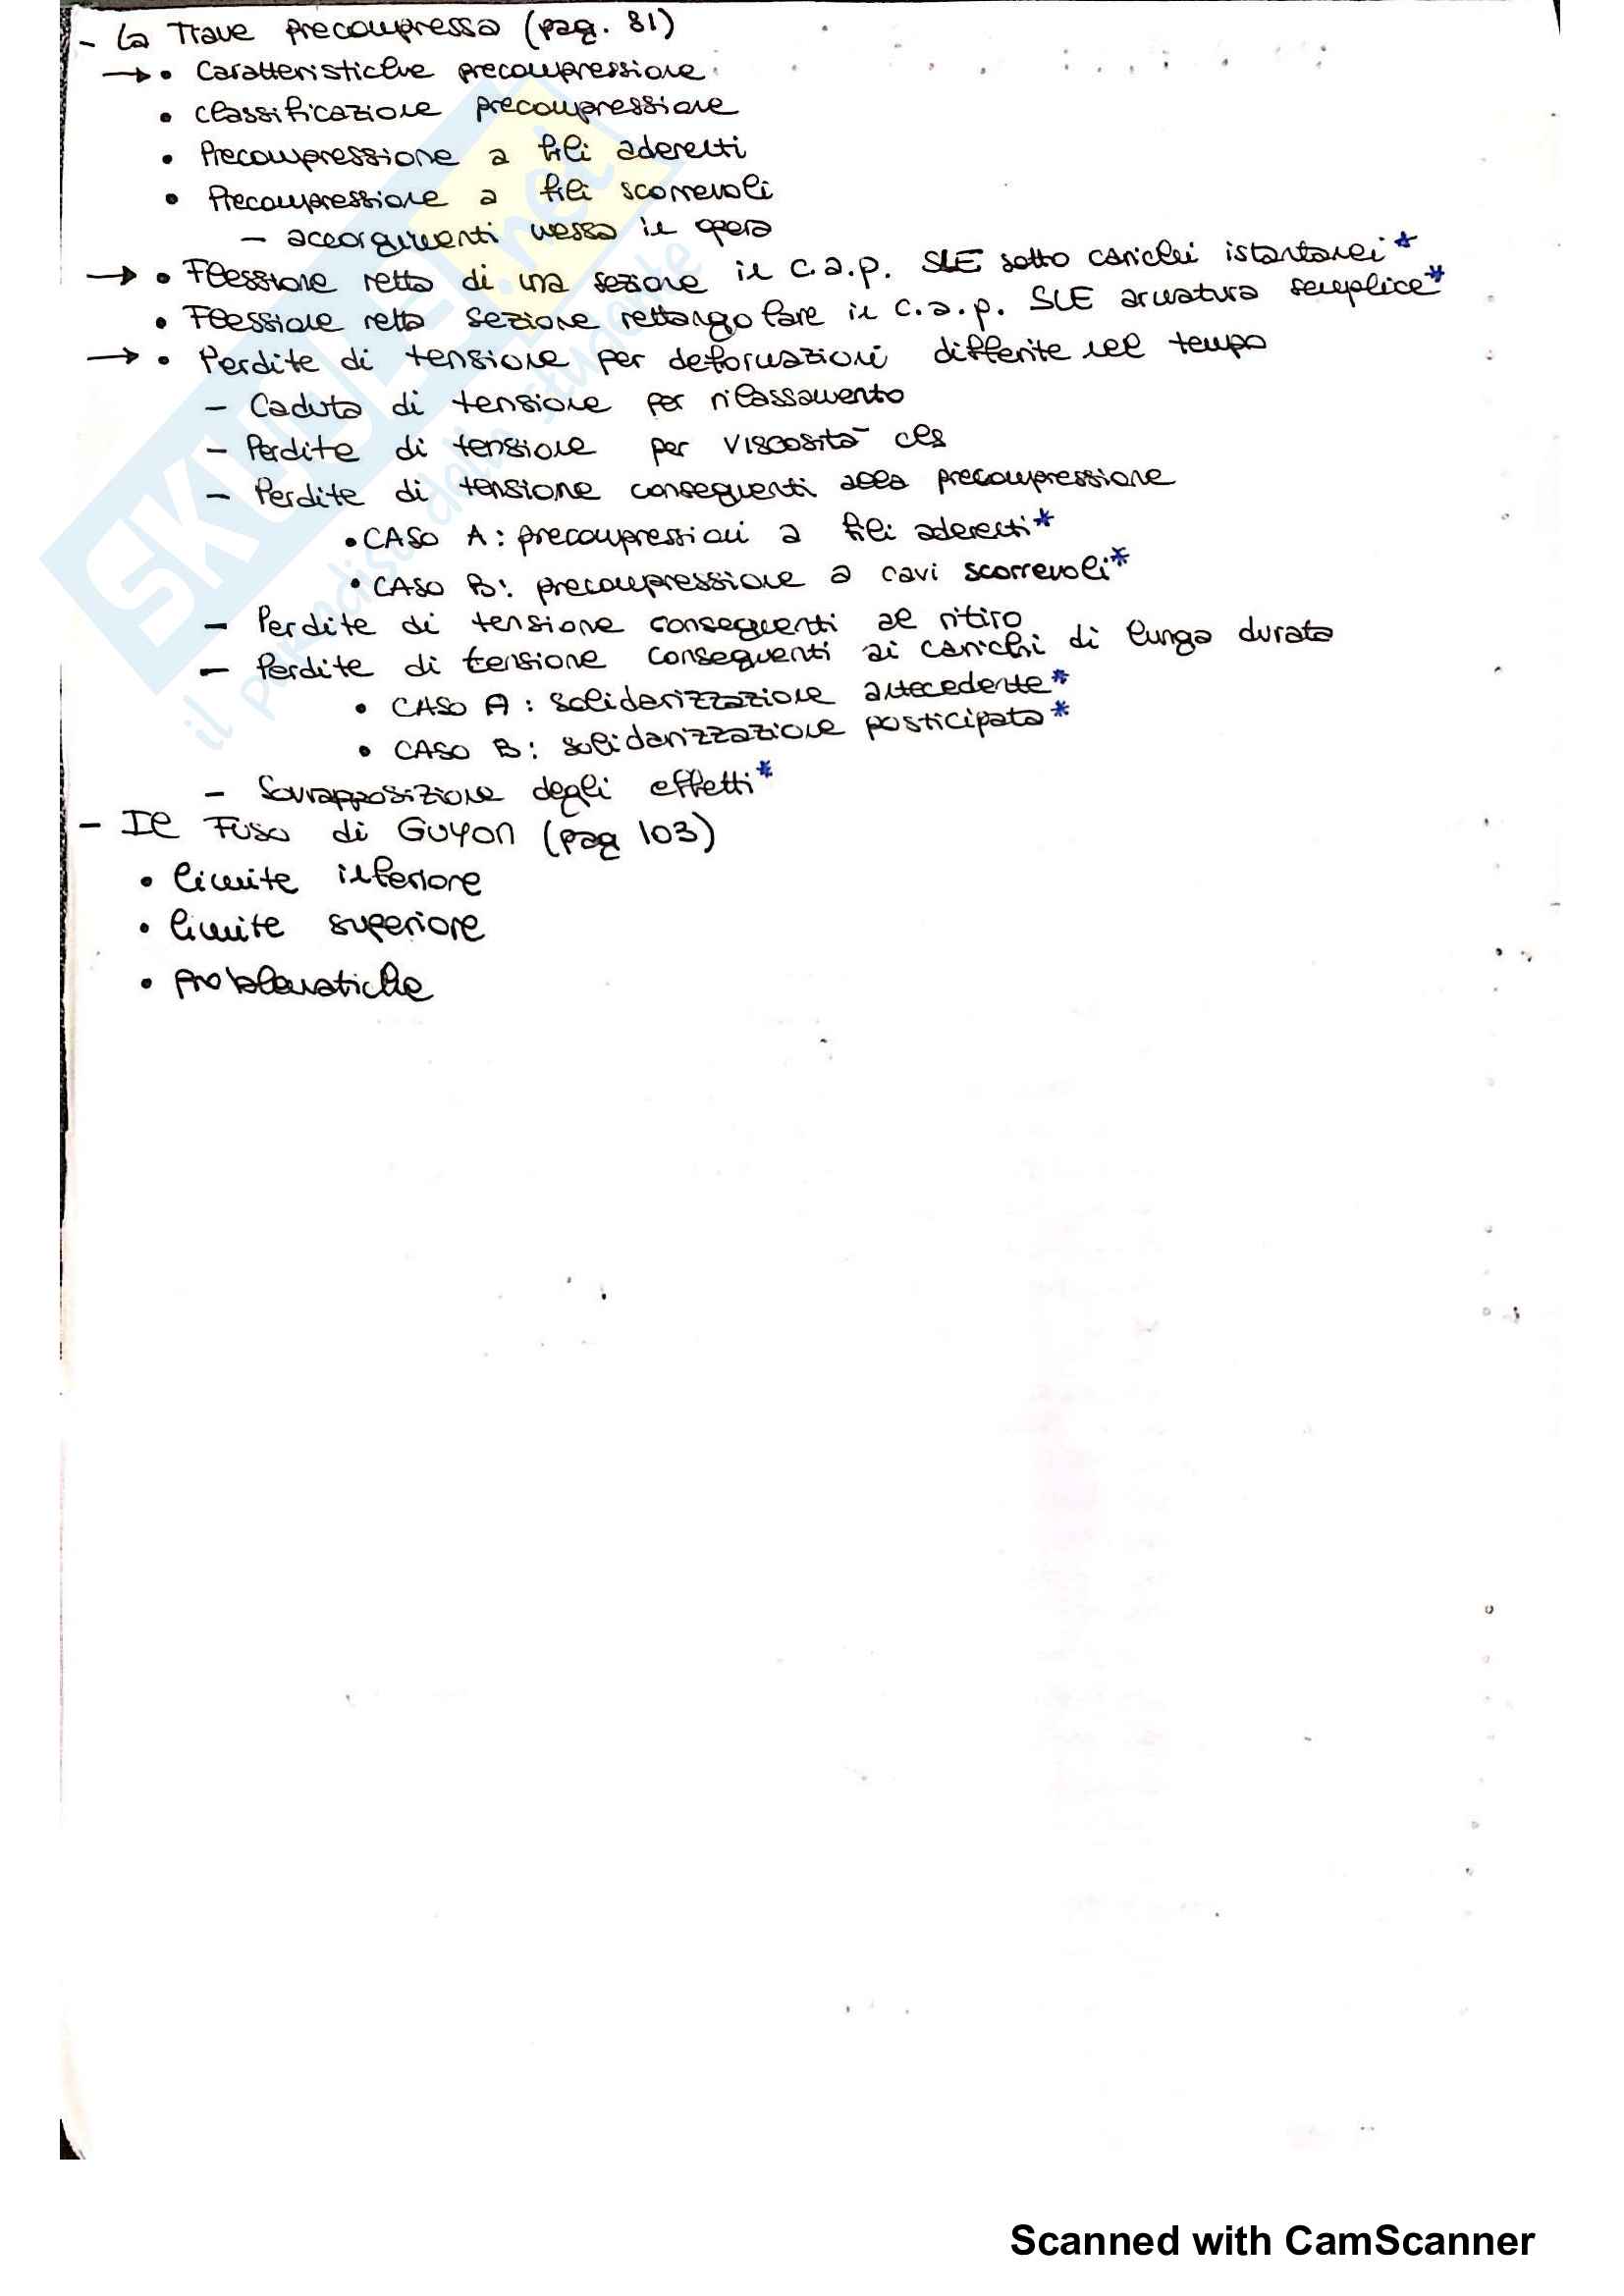 - La Trave precompressa (pag. 81)
→ • Caratteristiche precompressione
• classificazione precompressione
• Precompressione a fili aderenti
• Precompressione a fili scorrevoli
- accorgimenti messa in opera
→ • Flessione retta di una sezione in c.a.p. SLE sotto carichi istantanei *
• Flessione retta sezione rettangolare in c.a.p. SLE armatura semplice *
→ • Perdite di tensione per deformazioni differite nel tempo
- Caduta di tensione per rilassamento
- Perdite di tensione per viscosità cls
- Perdite di tensione conseguenti alla precompressione
• CASO A: precompressioni a fili aderenti *
• CASO B: precompressione a cavi scorrevoli *
- Perdite di tensione conseguenti al ritiro
- Perdite di tensione conseguenti ai carichi di lunga durata
• CASO A: solidarizzazione antecedente *
• CASO B: solidarizzazione posticipata *
- Sovrapposizione degli effetti *
- Il Fuso di Guyon (pag 103)
• limite inferiore
• limite superiore
• problematiche
SKUOLA.net
il paradiso dello studente
Scanned with CamScanner